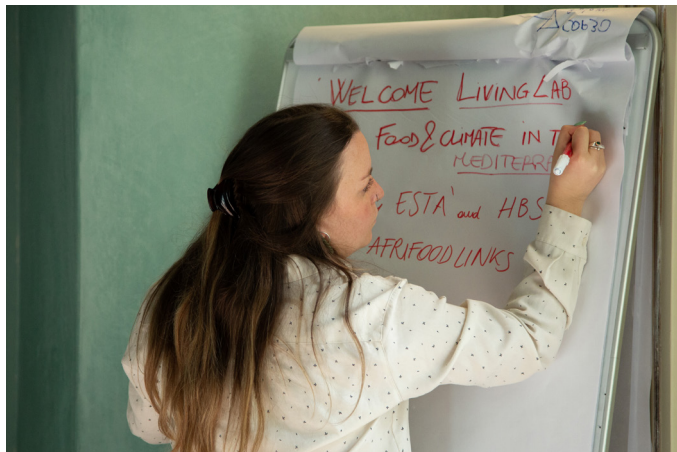 WELCOME LIVING LAB
FOOD & CLIMATE IN T
MEDITERRA
ESTA' and HBS
AFRIFOODLINKS